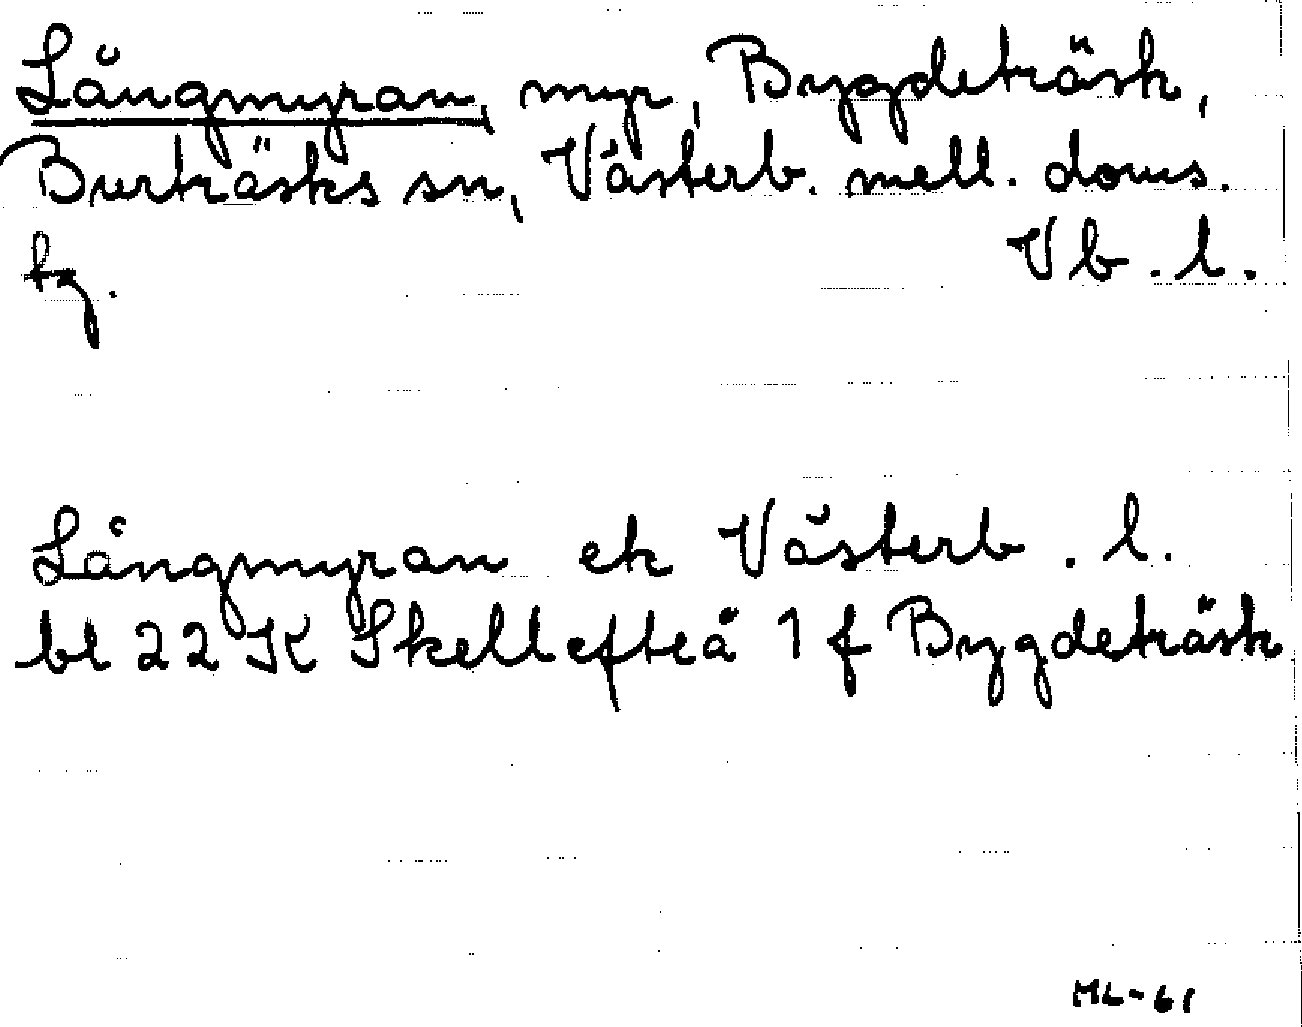 Långmyran, myr, Bygdeträsk,
Burträsks sn, Västerb. mell. doms.
tg. Vb. l.
Långmyran ek Västerb. l.
bl 22 K Skellefteå 1 f Bygdeträsk
ML-61